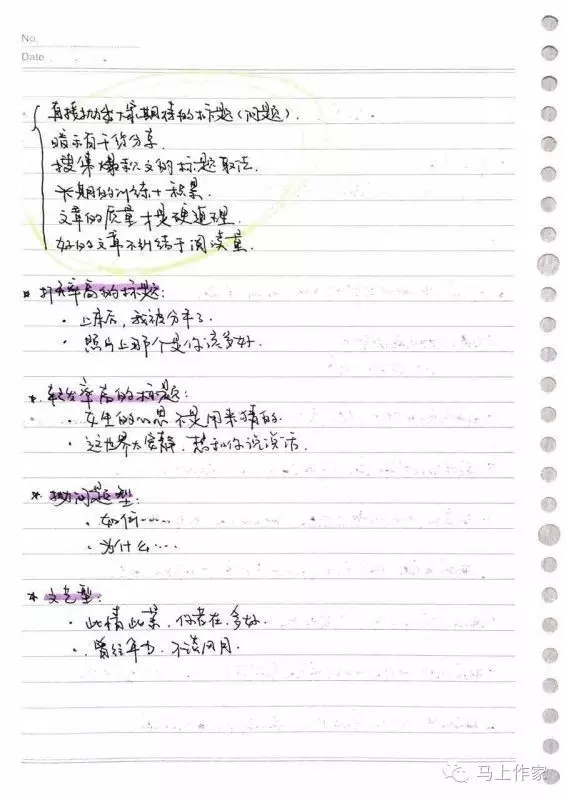 No.
Date
直接抛出大家期待的标题(问题).
暗示有干货分享.
搜集爆款文的标题取法.
长期的训练+积累.
文章的质量才是硬道理.
好的文章不纠结于阅读量.
* 打开率高的标题:
· 上床后,我被分手了.
· 照片上那个是你该多好.
* 转发率高的标题:
· 女生的心思不是用来猜的.
· 这世界太安静,想和你说说话.
* 抛问题型:
· 如何……
· 为什么…
* 文艺型:
· 此情此景,你若在,多好.
· 曾经年少,不谈风月.
马上作家